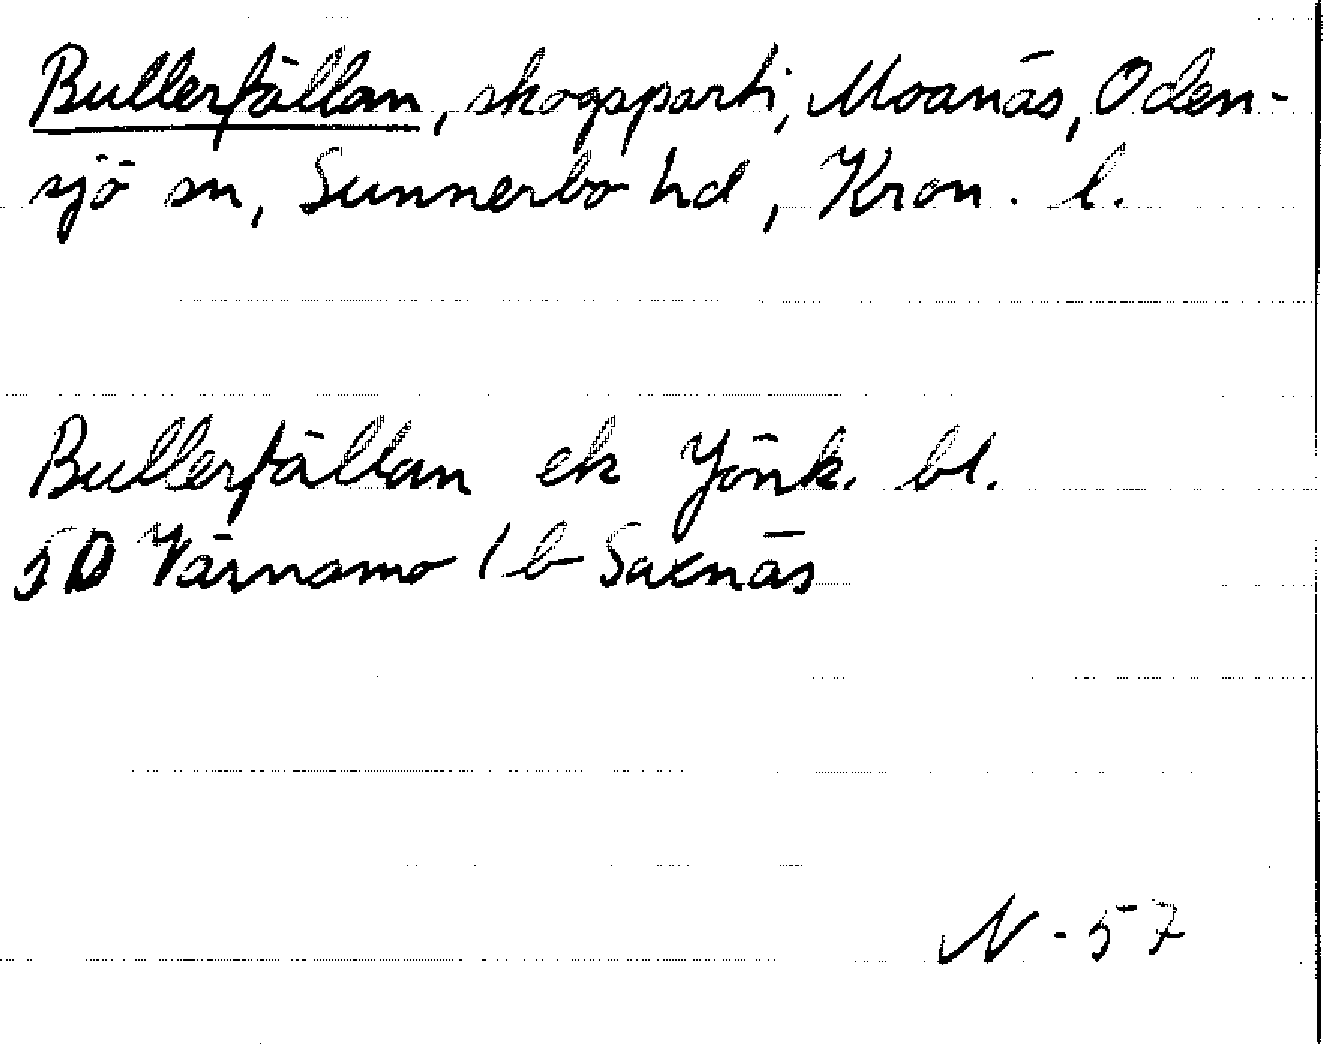 Bullerfällan, skogsparti, Moanäs, Oden-
sjö sn, Sunnerbo hd, Kron. l.
Bullerfällan ek Jönk. bl.
5D Värnamo 1b Saxnäs
N-57